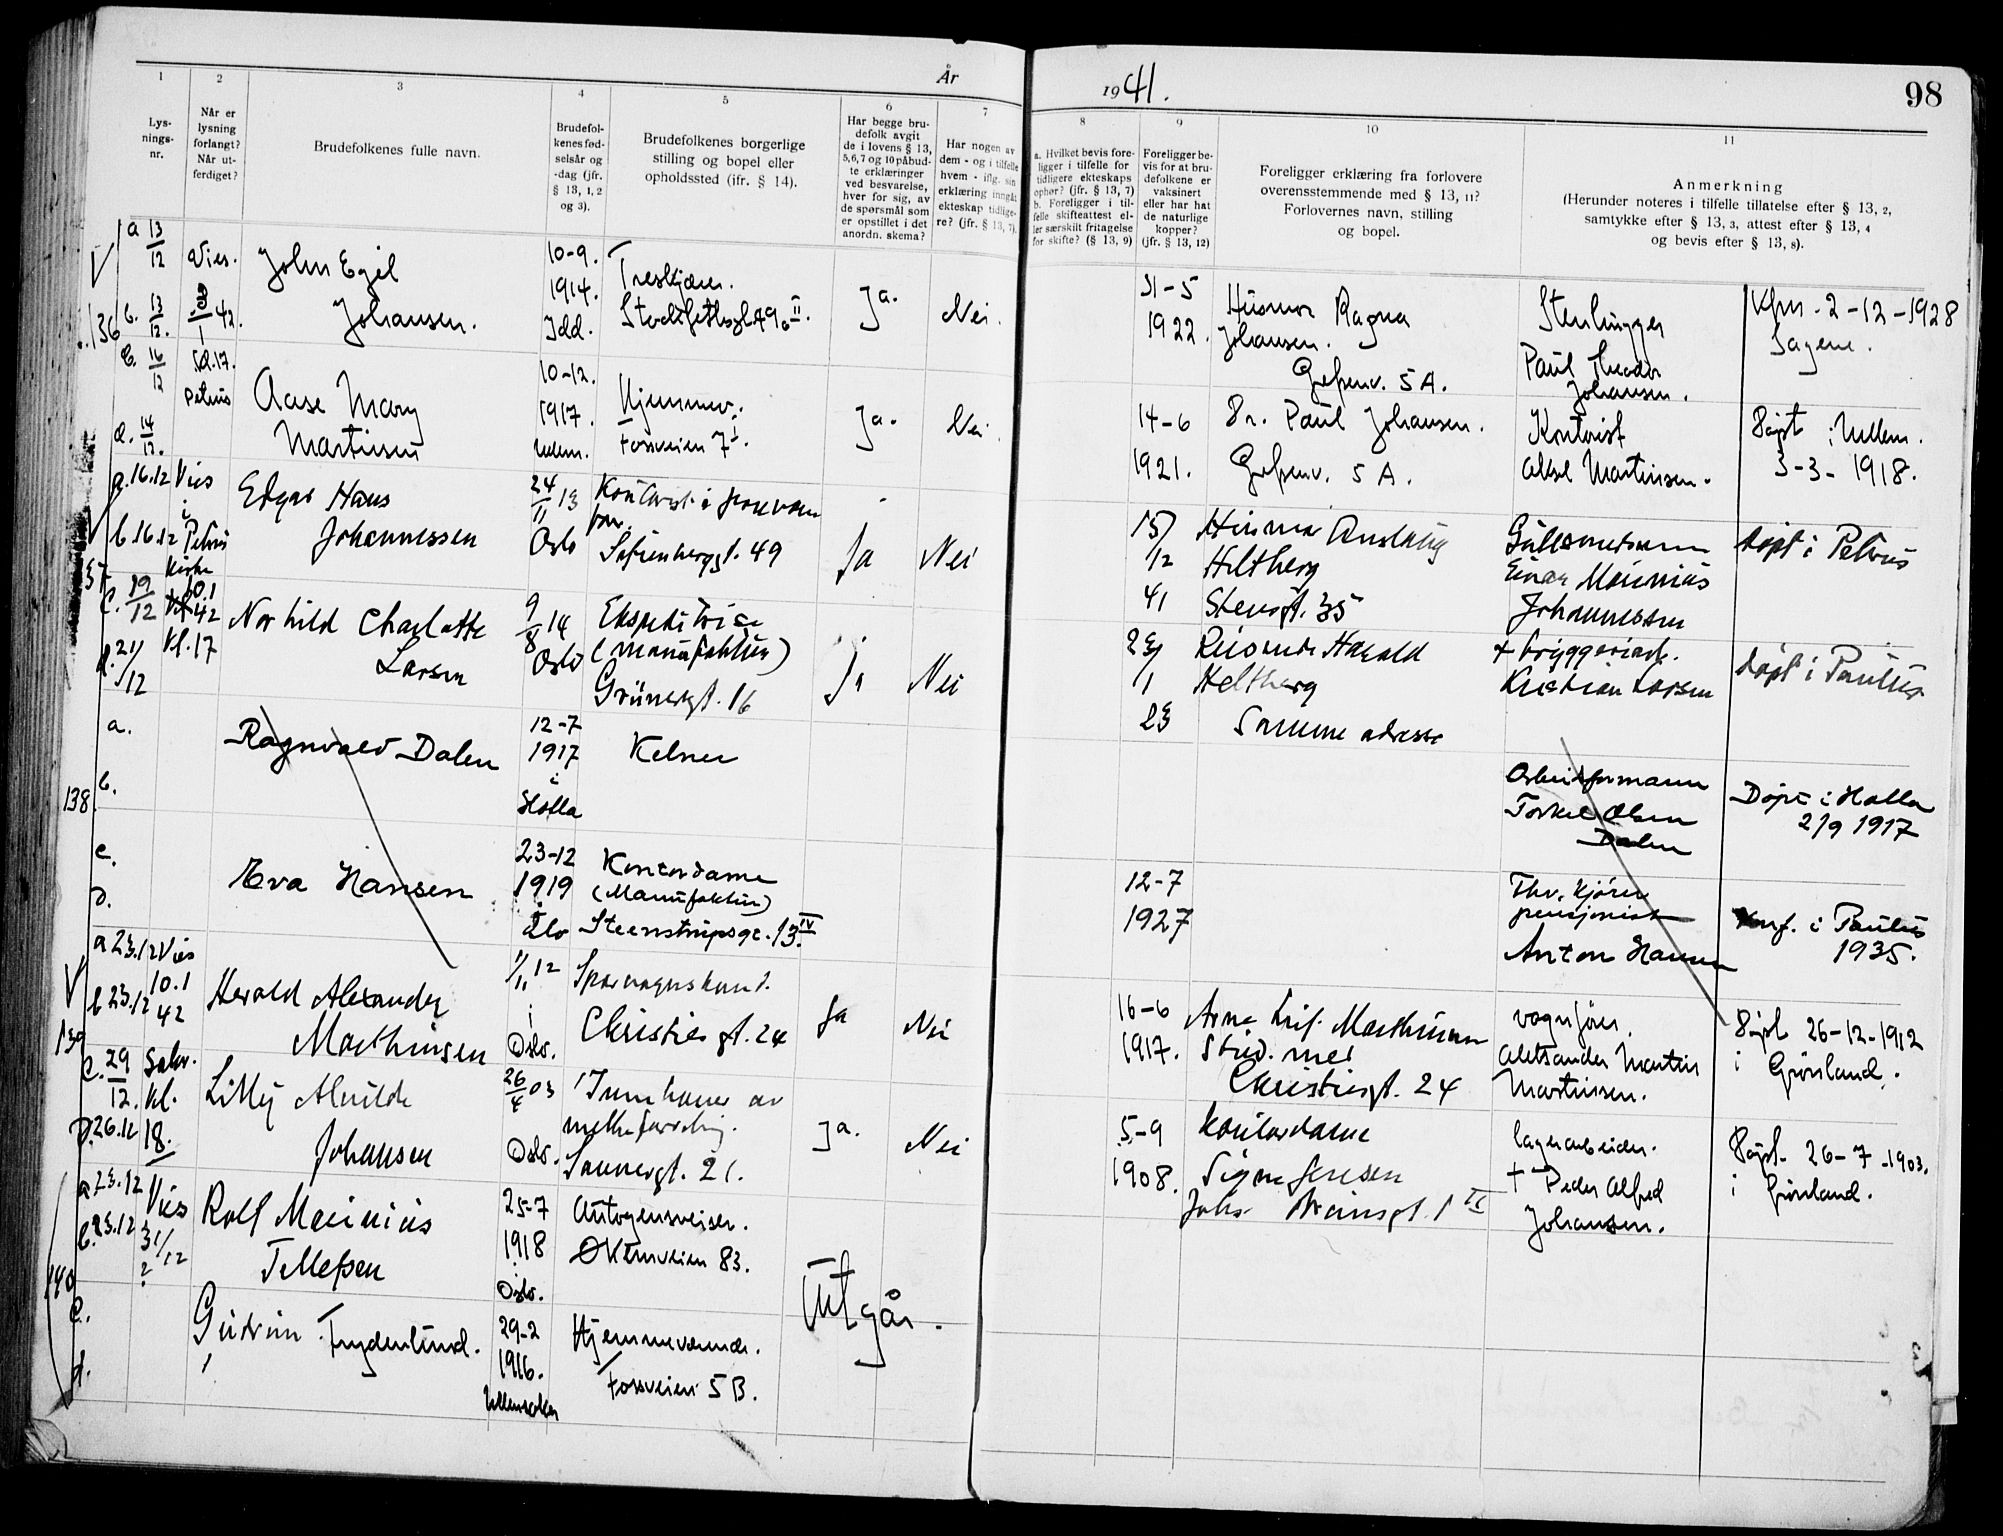 År
1941.
98
1
2
3
4
5
6
7
8
9
10
11
Lys-
nings-
nr.
Når er
lysning
forlangt?
Når ut-
ferdiget?
Brudefolkenes fulle navn.
Brudefol-
kenes fød-
selsår og
-dag (jfr.
§ 13, 1, 2
og 3).
Brudefolkenes borgerlige
stilling og bopel eller
opholdssted (ifr. § 14).
Har begge bru-
defolk avgit
de i lovens § 13,
5,6,7 og 10 påbud-
te erklæringer
ved besvarelse,
hver for sig, av
de spørsmål som
er opstillet i det
anordn. skema?
Har nogen av
dem - og i tilfelle
hvem - iflg. sin
erklæring inngåt
ekteskap tidlige-
re? (jfr. § 13, 7).
a. Hvilket bevis fore-
ligger i tilfelle for
tidligere ekteskaps
ophør? (jfr. § 13, 7)
b. Foreligger i til-
felle skifteattest el-
ler særskilt fritagelse
for skifte? (§ 13, 9)
Foreligger be-
vis for at bru-
defolkene er
vaksinert
eller har hat
de naturlige
kopper?
(jfr. § 13, 12)
Foreligger erklæring fra forlovere
overensstemmende med § 13, 11?
Forlovernes navn, stilling
og bopel.
Anmerkning
(Herunder noteres i tilfelle tillatelse efter § 13, 2,
samtykke efter § 13, 3, attest efter § 13, 4
og bevis efter § 13, 8).
136
a 13/12
b. 13/12.
c. 16/12
d. 14/12.
Vies.
1 42.
kl. 17.
Petrus
John Egil
Johansen.
10-9.
1914.
Idd.
Ja.
Nei.
31-5
1922.
Husmor Ragna
Johansen.
Grefsenv. 5 A.
Stenhugger
Paul Theodor
Johansen.
Kfm. 2-12-1928
Sagene.
Aase Mary
Martinsen
10-12.
1917.
Hjemmev.
Fossveien 7 I.
Ja.
Nei.
14-6
1921.
Paul Johansen.
Grefsenv. 5 A.
Kontorist
Aksel Martinsen.
Døpt i Ullern.
3-3-1918.
a.16.12
b.16.12
c. 19/12
d. 21/12
Vies
i
Petrus
kirke
10.1
42
kl. 17
Edgar Hans
Johannessen
24/11 13
Oslo
Sofienberggt. 49
Ja
Nei
15/
12
41
Husmor Anslaug
Heltberg
Stensgt. 35
Gullsmedsvenn
Einar Marinius
Johannessen
døpt i Petrus
Norhild Charlotte
Larsen
9/8 14
Oslo
Ekspeditrise
(manufaktur)
Grünersgt. 16
Ja
Nei
23/
1
23
Reisende Harald
Heltberg
Samme adresse
+ bryggeriarb.
Kristian Larsen
døpt i Paulus
138
a.
b.
c.
d.
Ragnvald Dalen
12-7
1917
i
Holla
Kelner
Arbeidsformann
Torkel Olsen
Dalen
Døpt i Holla
2/9 1917
Eva Hansen
23-12
1919
i
Oslo
Kontordame
(Manufaktur)
Steenstrupsgt. 13 IV
12-7
1927
Thv. Kjören
pensjonist
Anton Hansen
Konf. i Paulus
1935.
139
a 23.12
b 23.12
c. 29/12.
d. 26.12
Vies
10.1
42
Sakr.
kl.
18.
Harald Alexander
Marthinsen
1/11 12
i
Oslo.
Sporvognskond.
Christies gt. 24
Ja
Nei
16-6
1917.
Arne Leif Marthinsen
Stud. med
Christiesgt. 24
vognfører.
Aleksander Martin
Martinsen.
Døpt 26-12-1912
i Grønland.
Lilly Alvilde
Johansen
26/4 03
Oslo.
Innehaver av
melkeforretning.
Sannergt. 21.
Ja.
Nei
5-9
1908.
Kontordame
Signe Jensen
Johs. Brunsgt. 1 II
lagerarbeider.
+ Peder Alfred
Johansen.
Døpt. 26-7-1903.
i Grønland.
140
a 23.12
b. 23.12
c.
d.
Vies
31/12
?
Rolf Marinius
Tellefsen
25-7
1918
i
Oslo.
Autogensveiser.
Økernveien 83.
Utgår.
Gudrun Frydenlund.
29-2
1916.
Ullensaker
Hjemmeværende.
Fossveien 5 B.